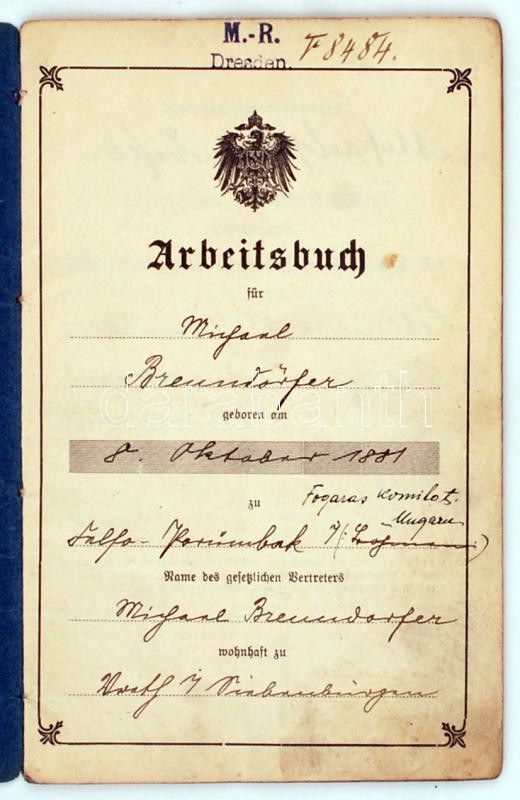 M.-R.
Dresden.
F 8484.
Arbeitsbuch
für
Michael
Brenndörfer
geboren am
8. Oktober 1881
zu
Fogaras Komitat.
Ungarn
Felső-Porumbak
Name des gesetzlichen Vertreters
Michael Brenndorfer
wohnhaft zu
Siebenbürgen
darabanth